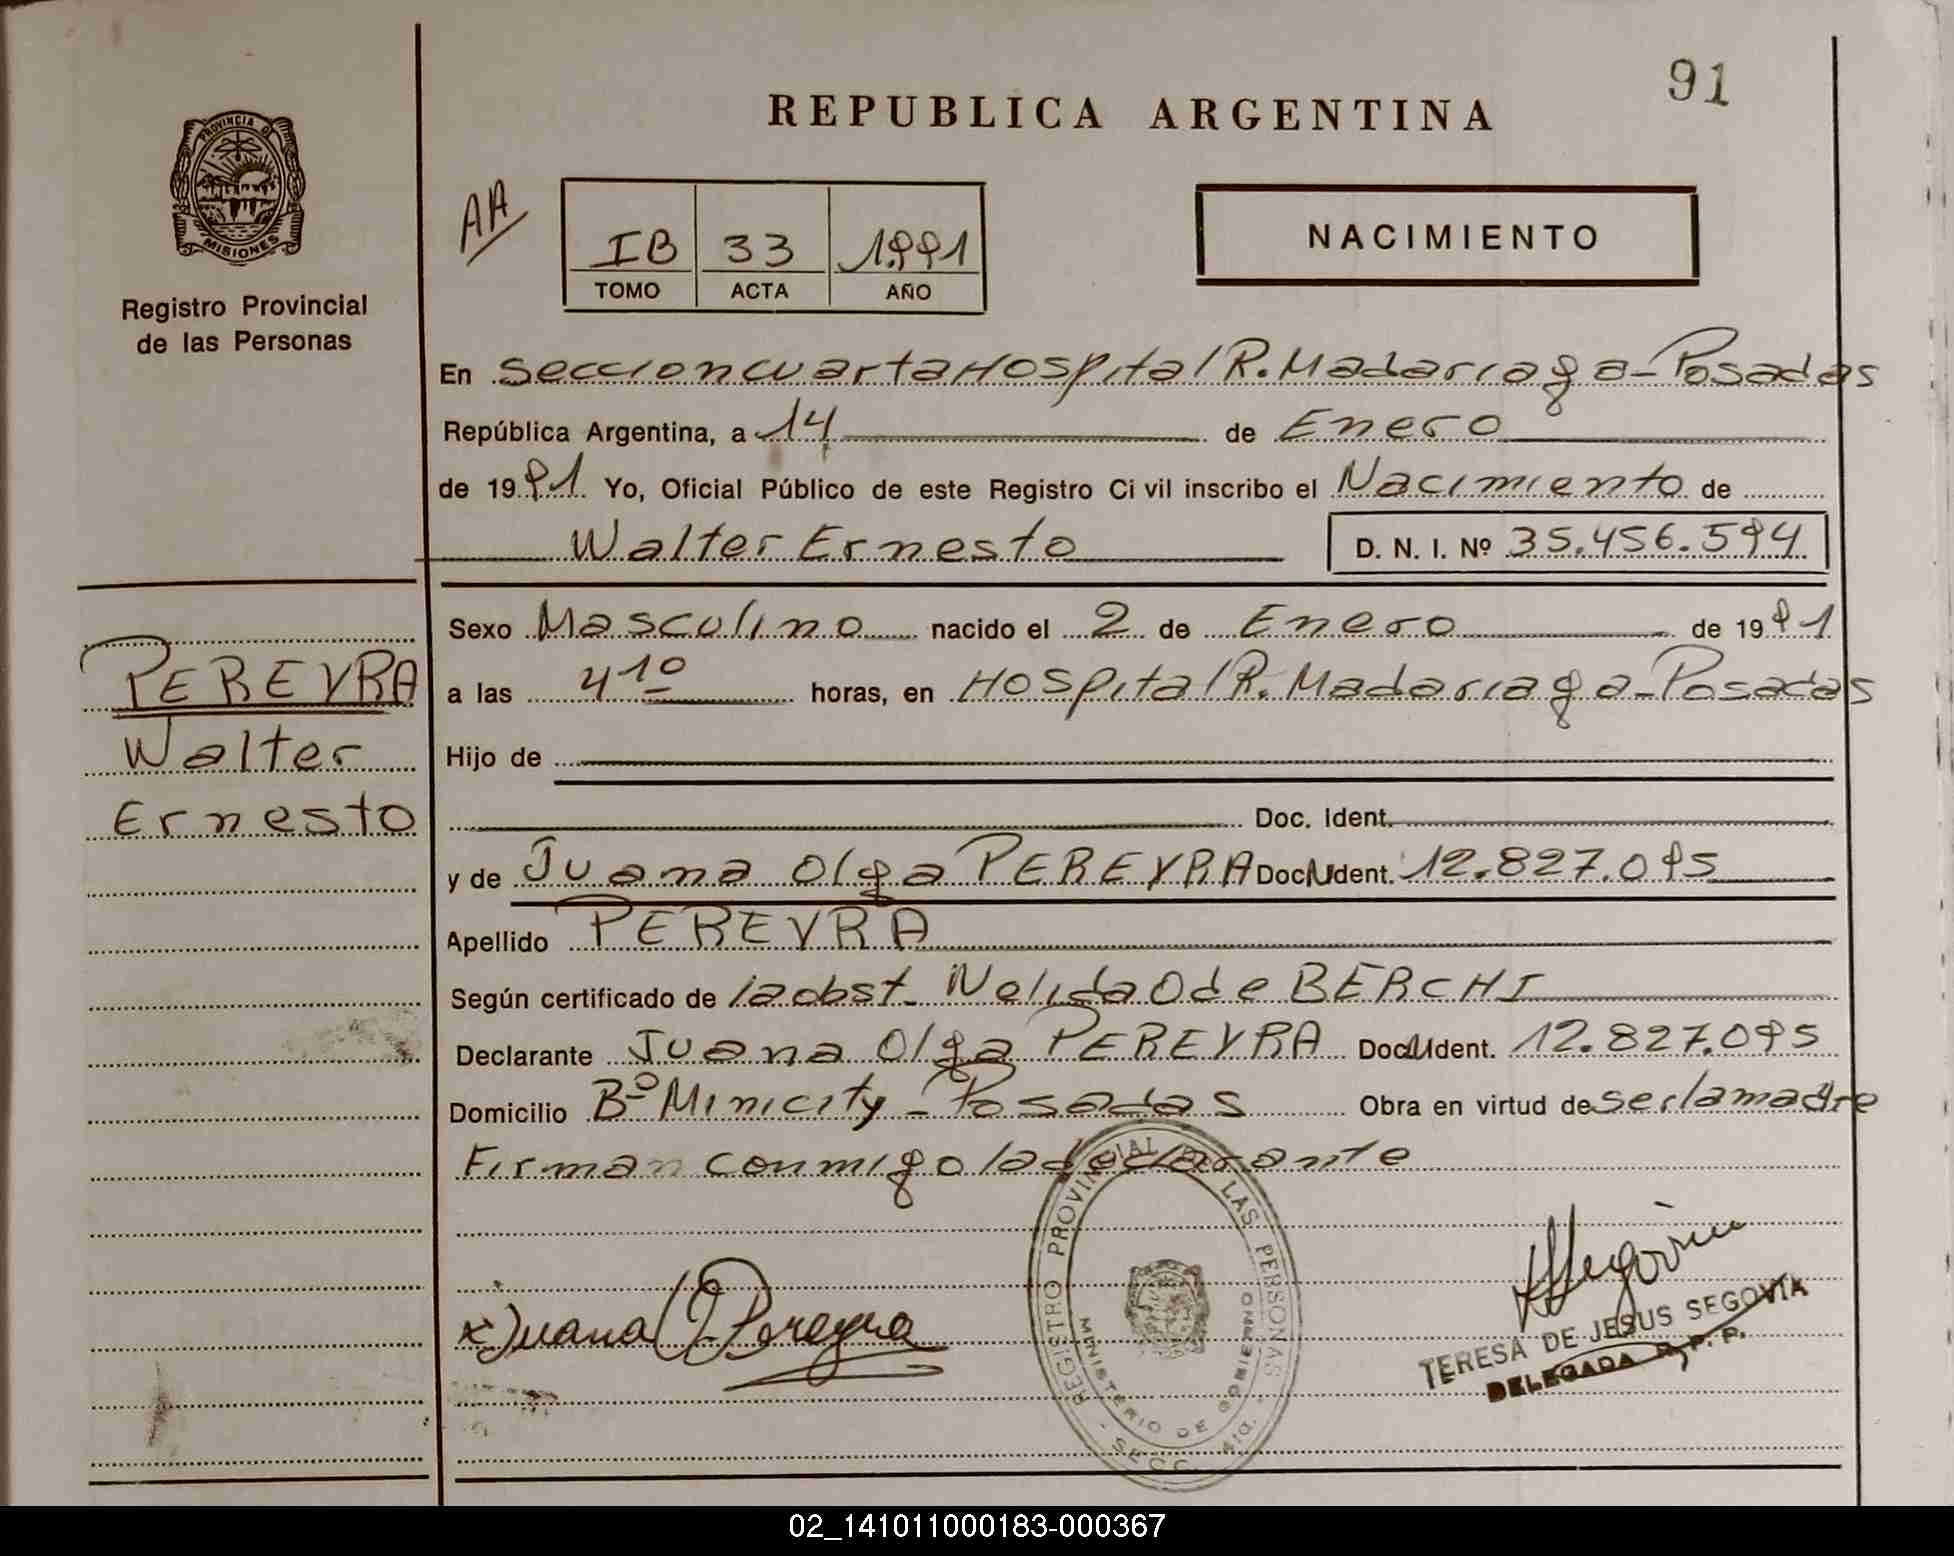 91
REPUBLICA ARGENTINA
PROVINCIA DE
MISIONES
Registro Provincial
de las Personas
AA
IB 33 1991
TOMO ACTA AÑO
NACIMIENTO
En Seccion cuarta Hospital R. Madariaga - Posadas
República Argentina, a 14 de Enero
de 1991 Yo, Oficial Público de este Registro Civil inscribo el Nacimiento de
Walter Ernesto D. N. I. Nº 35.456.594
Sexo Masculino nacido el 2 de Enero de 1991
a las 4 10 horas, en Hospital R. Madariaga - Posadas
Hijo de
Doc. Ident.
y de Juana Olga PEREYRA Doc. Ident. 12.827.095
Apellido PEREYRA
Según certificado de la obst. Nelida O de BERCHI
Declarante Juana Olga PEREYRA Doc. Ident. 12.827.095
Domicilio Bº Minicity - Posadas Obra en virtud de ser la madre
Firman conmigo la declarante
PEREYRA
Walter
Ernesto
x Juana O. Pereyra
REGISTRO PROVINCIAL DE LAS PERSONAS
MINISTERIO DE GOBIERNO
SECC. 4ta.
Segovia
TERESA DE JESUS SEGOVIA
DELEGADA R. P. P.
02_141011000183-000367